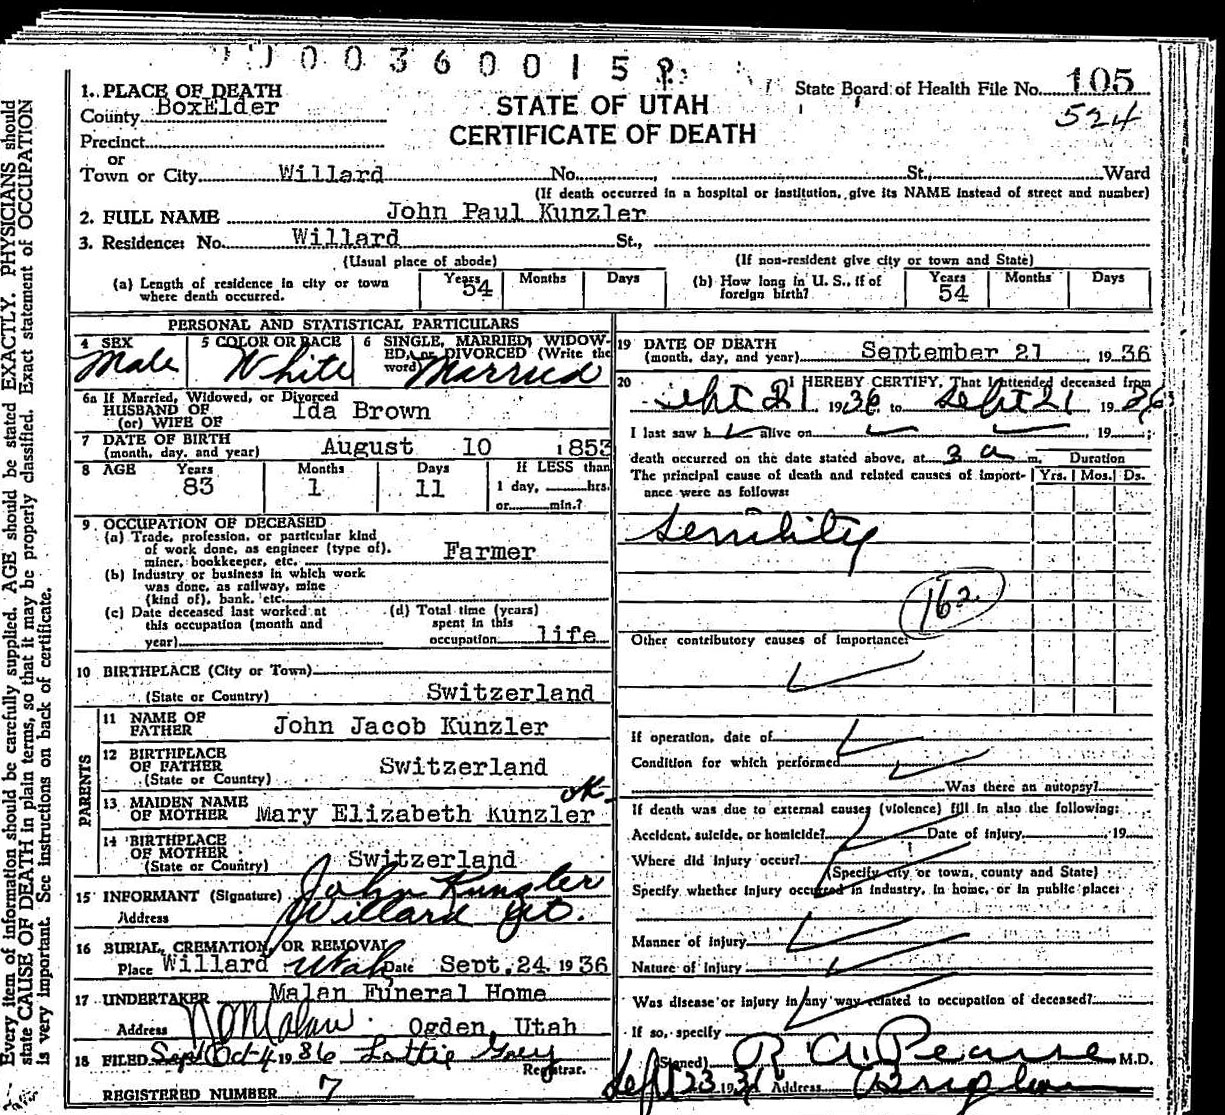 0036001 5
1. PLACE OF DEATH
County BoxElder
Precinct
or
Town or City Willard No. St., Ward
State Board of Health File No. 105
524
STATE OF UTAH
CERTIFICATE OF DEATH
(If death occurred in a hospital or institution, give its NAME instead of street and number)
2. FULL NAME John Paul Kunzler
3. Residence: No. Willard St.,
(Usual place of abode) (If non-resident give city or town and State)
(a) Length of residence in city or town where death occurred. Years 54 Months Days
(b) How long in U. S., if of foreign birth? Years 54 Months Days
PERSONAL AND STATISTICAL PARTICULARS
4 SEX Male
5 COLOR OR RACE White
6 SINGLE, MARRIED, WIDOWED, or DIVORCED (Write the word) Married
6a If Married, Widowed, or Divorced
HUSBAND OF
(or) WIFE OF Ida Brown
7 DATE OF BIRTH
(month, day, and year) August 10 1853
8 AGE Years 83 Months 1 Days 11 If LESS than 1 day, hrs. or min.?
9 OCCUPATION OF DECEASED
(a) Trade, profession, or particular kind
of work done, as engineer (type of),
miner, bookkeeper, etc. Farmer
(b) Industry or business in which work
was done, as railway, mine
(kind of), bank, etc.
(c) Date deceased last worked at
this occupation (month and
year)
(d) Total time (years)
spent in this
occupation life
10 BIRTHPLACE (City or Town)
(State or Country) Switzerland
PARENTS
11 NAME OF
FATHER John Jacob Kunzler
12 BIRTHPLACE
OF FATHER
(State or Country) Switzerland
13 MAIDEN NAME
OF MOTHER Mary Elizabeth Kunzler ok
14 BIRTHPLACE
OF MOTHER
(State or Country) Switzerland
15 INFORMANT (Signature) John Kunzler
Address Willard
16 BURIAL, CREMATION, OR REMOVAL
Place Willard Utah Date Sept. 24 1936
17 UNDERTAKER Malan Funeral Home
Address Malan. Ogden, Utah
18 FILED Sept Oct 4 1936 Lottie
Registrar.
REGISTERED NUMBER 7
19 DATE OF DEATH
(month, day, and year) September 21 1936
20 I HEREBY CERTIFY, That I attended deceased from
Sept 21 1936, to Sept 21 1936
I last saw h alive on 19 ;
death occurred on the date stated above, at 3 a m. Duration
The principal cause of death and related causes of importance were as follows: Yrs. Mos. Ds.
Senility
162
Other contributory causes of importance:
If operation, date of
Condition for which performed
Was there an autopsy?
If death was due to external causes (violence) fill in also the following:
Accident, suicide, or homicide? Date of injury, 19
Where did injury occur?
(Specify city or town, county and State)
Specify whether injury occurred in industry, in home, or in public place:
Manner of injury
Nature of injury
Was disease or injury in any way related to occupation of deceased?
If so, specify
(Signed) R A Pearse M.D.
Sept 23 1936 Address Brigham
Every item of information should be carefully supplied. AGE should be stated EXACTLY. PHYSICIANS should
state CAUSE OF DEATH in plain terms, so that it may be properly classified. Exact statement of OCCUPATION
is very important. See instructions on back of certificate.